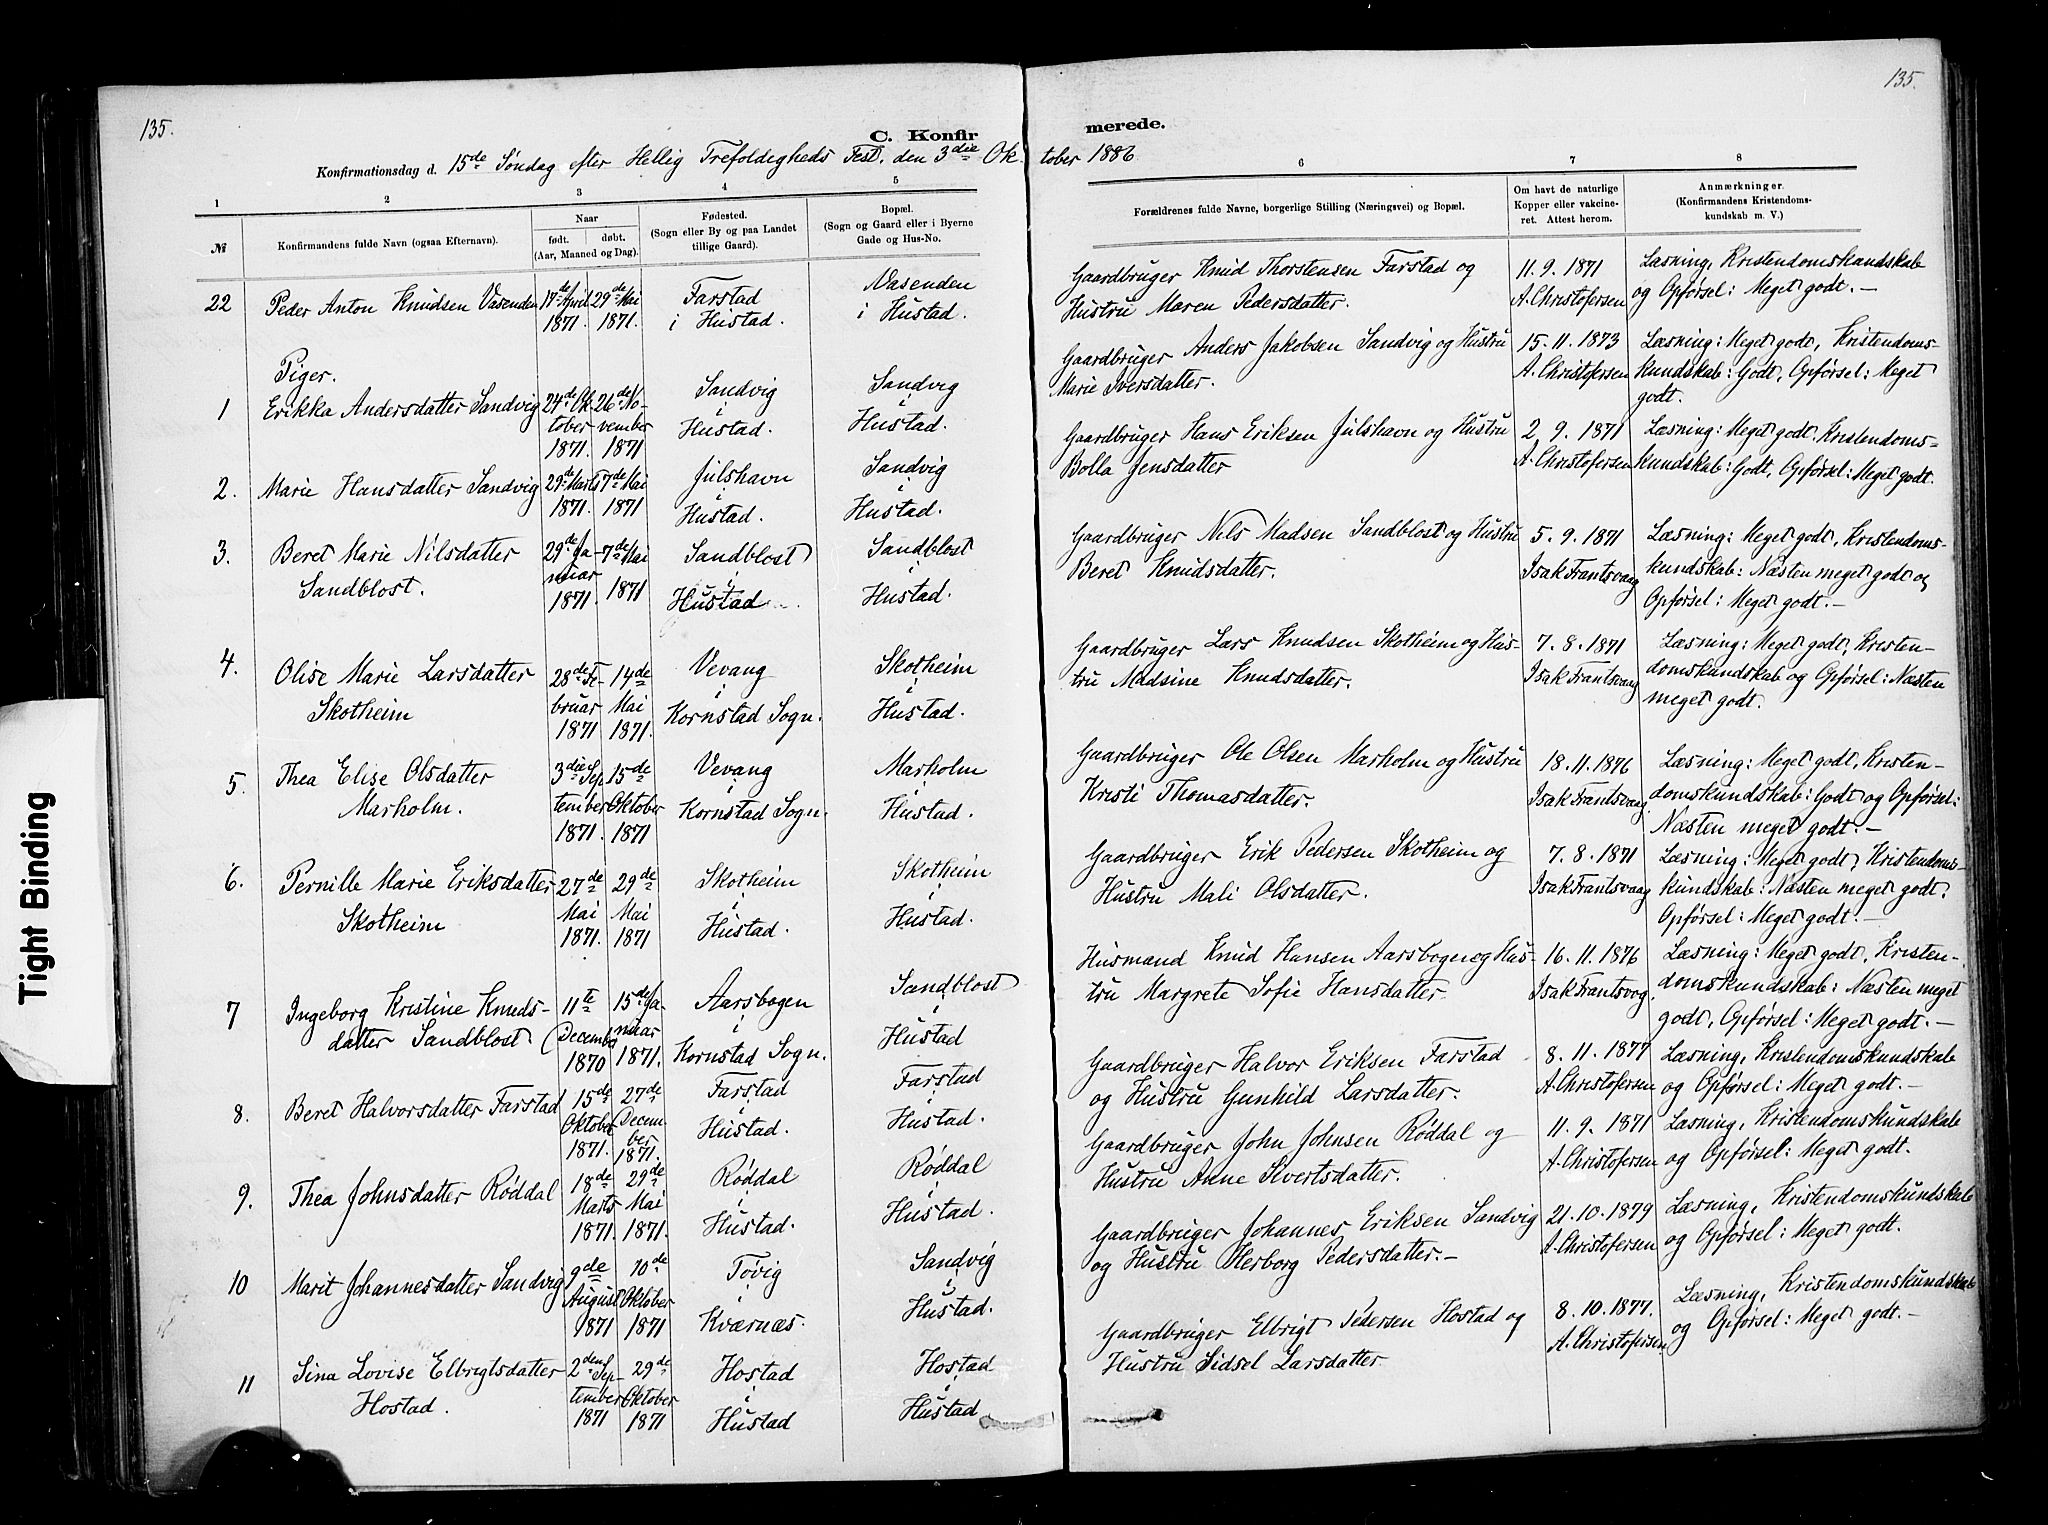 135.
135.
C. Konfirmerede.
Konfirmationsdag d. 15de Søndag efter Hellig Trefoldigheds Fest, den 3die Oktober 1886
1 2 3 4 5 6 7 8
№
Konfirmandens fulde Navn (ogsaa Efternavn).
Naar
født. døbt.
(Aar, Maaned og Dag).
Fødested.
(Sogn eller By og paa Landet
tillige Gaard).
Bopæl.
(Sogn og Gaard eller i Byerne
Gade og Hus-No.
Forældrenes fulde Navne, borgerlige Stilling (Næringsvei) og Bopæl.
Om havt de naturlige
Kopper eller vakcine-
ret. Attest herom.
Anmærkninger.
(Konfirmandens Kristendoms-
kundskab m. V.)
22
Peder Anton Knudsen Vasenden
17de April
1871.
29de Mai
1871.
Farstad
i Hustad.
Vasenden
i Hustad.
Gaardbruger Knud Thorstensen Farstad og
Hustru Maren Pedersdatter.
11.9.1871
A. Christofersen
Læsning, Kristendomskundskab
og Opførsel: Meget godt. –
Piger.
1
Erikka Andersdatter Sandvig
24de Ok-
tober
1871.
26de No-
vember
1871
Sandvig
i
Hustad.
Sandvig
i
Hustad.
Gaardbruger Anders Jakobsen Sandvig og Hustru
Marie Iversdatter.
15.11.1873
A. Christofersen
Læsning: Meget godt, Kristendoms-
kundskab: Godt, Opførsel: Meget
godt.
2.
Marie Hansdatter Sandvig
29de Marts
1871.
7de Mai
1871
Julshavn
i
Hustad.
Sandvig
i
Hustad.
Gaardbruger Hans Eriksen Julshavn og Hustru
Bolla Jensdatter
2.9.1871
A. Christofersen
Læsning: Meget godt, Kristendoms-
kundskab: Godt, Opførsel: Meget godt.
3.
Beret Marie Nilsdatter
Sandblost.
29de Ja-
nuar
1871.
7de Mai
1871
Sandblost
i
Hustad.
Sandblost
i
Hustad.
Gaardbruger Nels Madsen Sandblost og Hustru
Beret Knudsdatter.
5.9.1871
Isak Frantsvaag
Læsning: Meget godt, Kristendoms-
kundskab: Næsten meget godt og
Opførsel: Meget godt. –
4.
Olise Marie Larsdatter
Skotheim
28de Fe-
bruar
1871
14de
Mai
1871.
Vevang
i
Kornstad Sogn.
Skotheim
i
Hustad.
Gaardbruger Lars Knudsen Skotheim og Hus-
tru Madsine Knudsdatter.
7.8.1871
Isak Frantsvaag
Læsning: Meget godt, Kristen-
domskundskab og Opførsel: Næsten
meget godt.
5.
Thea Elise Olsdatter
Marholm.
3die Sep
tember
1871.
15de
Oktober
1871
Vevang
i
Kornstad Sogn.
Marholm
i
Hustad.
Gaardbruger Ole Olsen Marholm og Hustru
Kristi Thomasdatter.
18.11.1876
Isak Frantsvaag
Læsning: Meget godt, Kristen-
domskundskab: Godt og Opførsel:
Næsten meget godt. –
6.
Pernille Marie Eriksdatter
Skotheim
27de
Mai
1871.
29de
Mai
1871
Skotheim
i
Hustad.
Skotheim
i
Hustad.
Gaardbruger Erik Pedersen Skotheim og
Hustru Mali Olsdatter.
7.8.1871
Isak Frantsvaag
Læsning: Meget godt, Kristendoms-
kundskab: Næsten meget godt.
Opførsel: Meget godt. –
7
Ingeborg Kristine Knuds-
datter Sandblost
11te
December
1870
15de Ja-
nuar
1871.
Aarsbogen
i
Kornstad Sogn.
Sandblost
i
Hustad
Husmand Knud Hansen Aarsbogen og Hus-
tru Margrete Sofie Hansdatter
16.11.1876
Isak Frantsvog
Læsning: Meget godt, Kristen-
domskundskab: Næsten meget
godt, Opførsel: Meget godt. –
8.
Beret Halvorsdatter Farstad
15de
Oktober
1871.
27de
Decem-
ber
1871.
Farstad
i
Hustad.
Farstad
i
Hustad.
Gaardbruger Halvor Eriksen Farstad
og Hustru Gunhild Larsdatter.
8.11.1877
A. Christofersen
Læsning, Kristendomskundskab
og Opførsel: Meget godt. –
9.
Thea Johnsdatter Røddal
18de
Marts
1871.
29de
Mai
1871.
Røddal
i
Hustad.
Røddal
i
Hustad.
Gaardbruger John Johnsen Røddal og
Hustru Anne Sivertsdatter.
11.9.1871
A. Christofersen
Læsning, Kristendomskundskab
og Opførsel: Meget godt.
10
Marit Johannesdatter Sandvig
9de
August
1871
10de
Oktober
1871
Tøvig
i
Kværnæs.
Sandvig
i
Hustad.
Gaardbruger Johannes Eriksen Sandvig
og Hustru Herborg Pedersdatter. –
21.10.1879
A. Christofersen
Læsning, Kristendomskundskab
og Opførsel: Meget godt.
11
Sina Lovise Elbrigtsdatter
Hostad.
2den Sep-
tember
1871
29de
Oktober
1871
Hostad
i
Hustad
Hostad
i
Hustad
Gaardbruger Elbrigt Pedersen Hostad og
Hustru Sidsel Larsdatter
8.10.1877.
A. Christofersen
Læsning, Kristendomskundskab
og Opførsel: Meget godt. –
Tight Binding